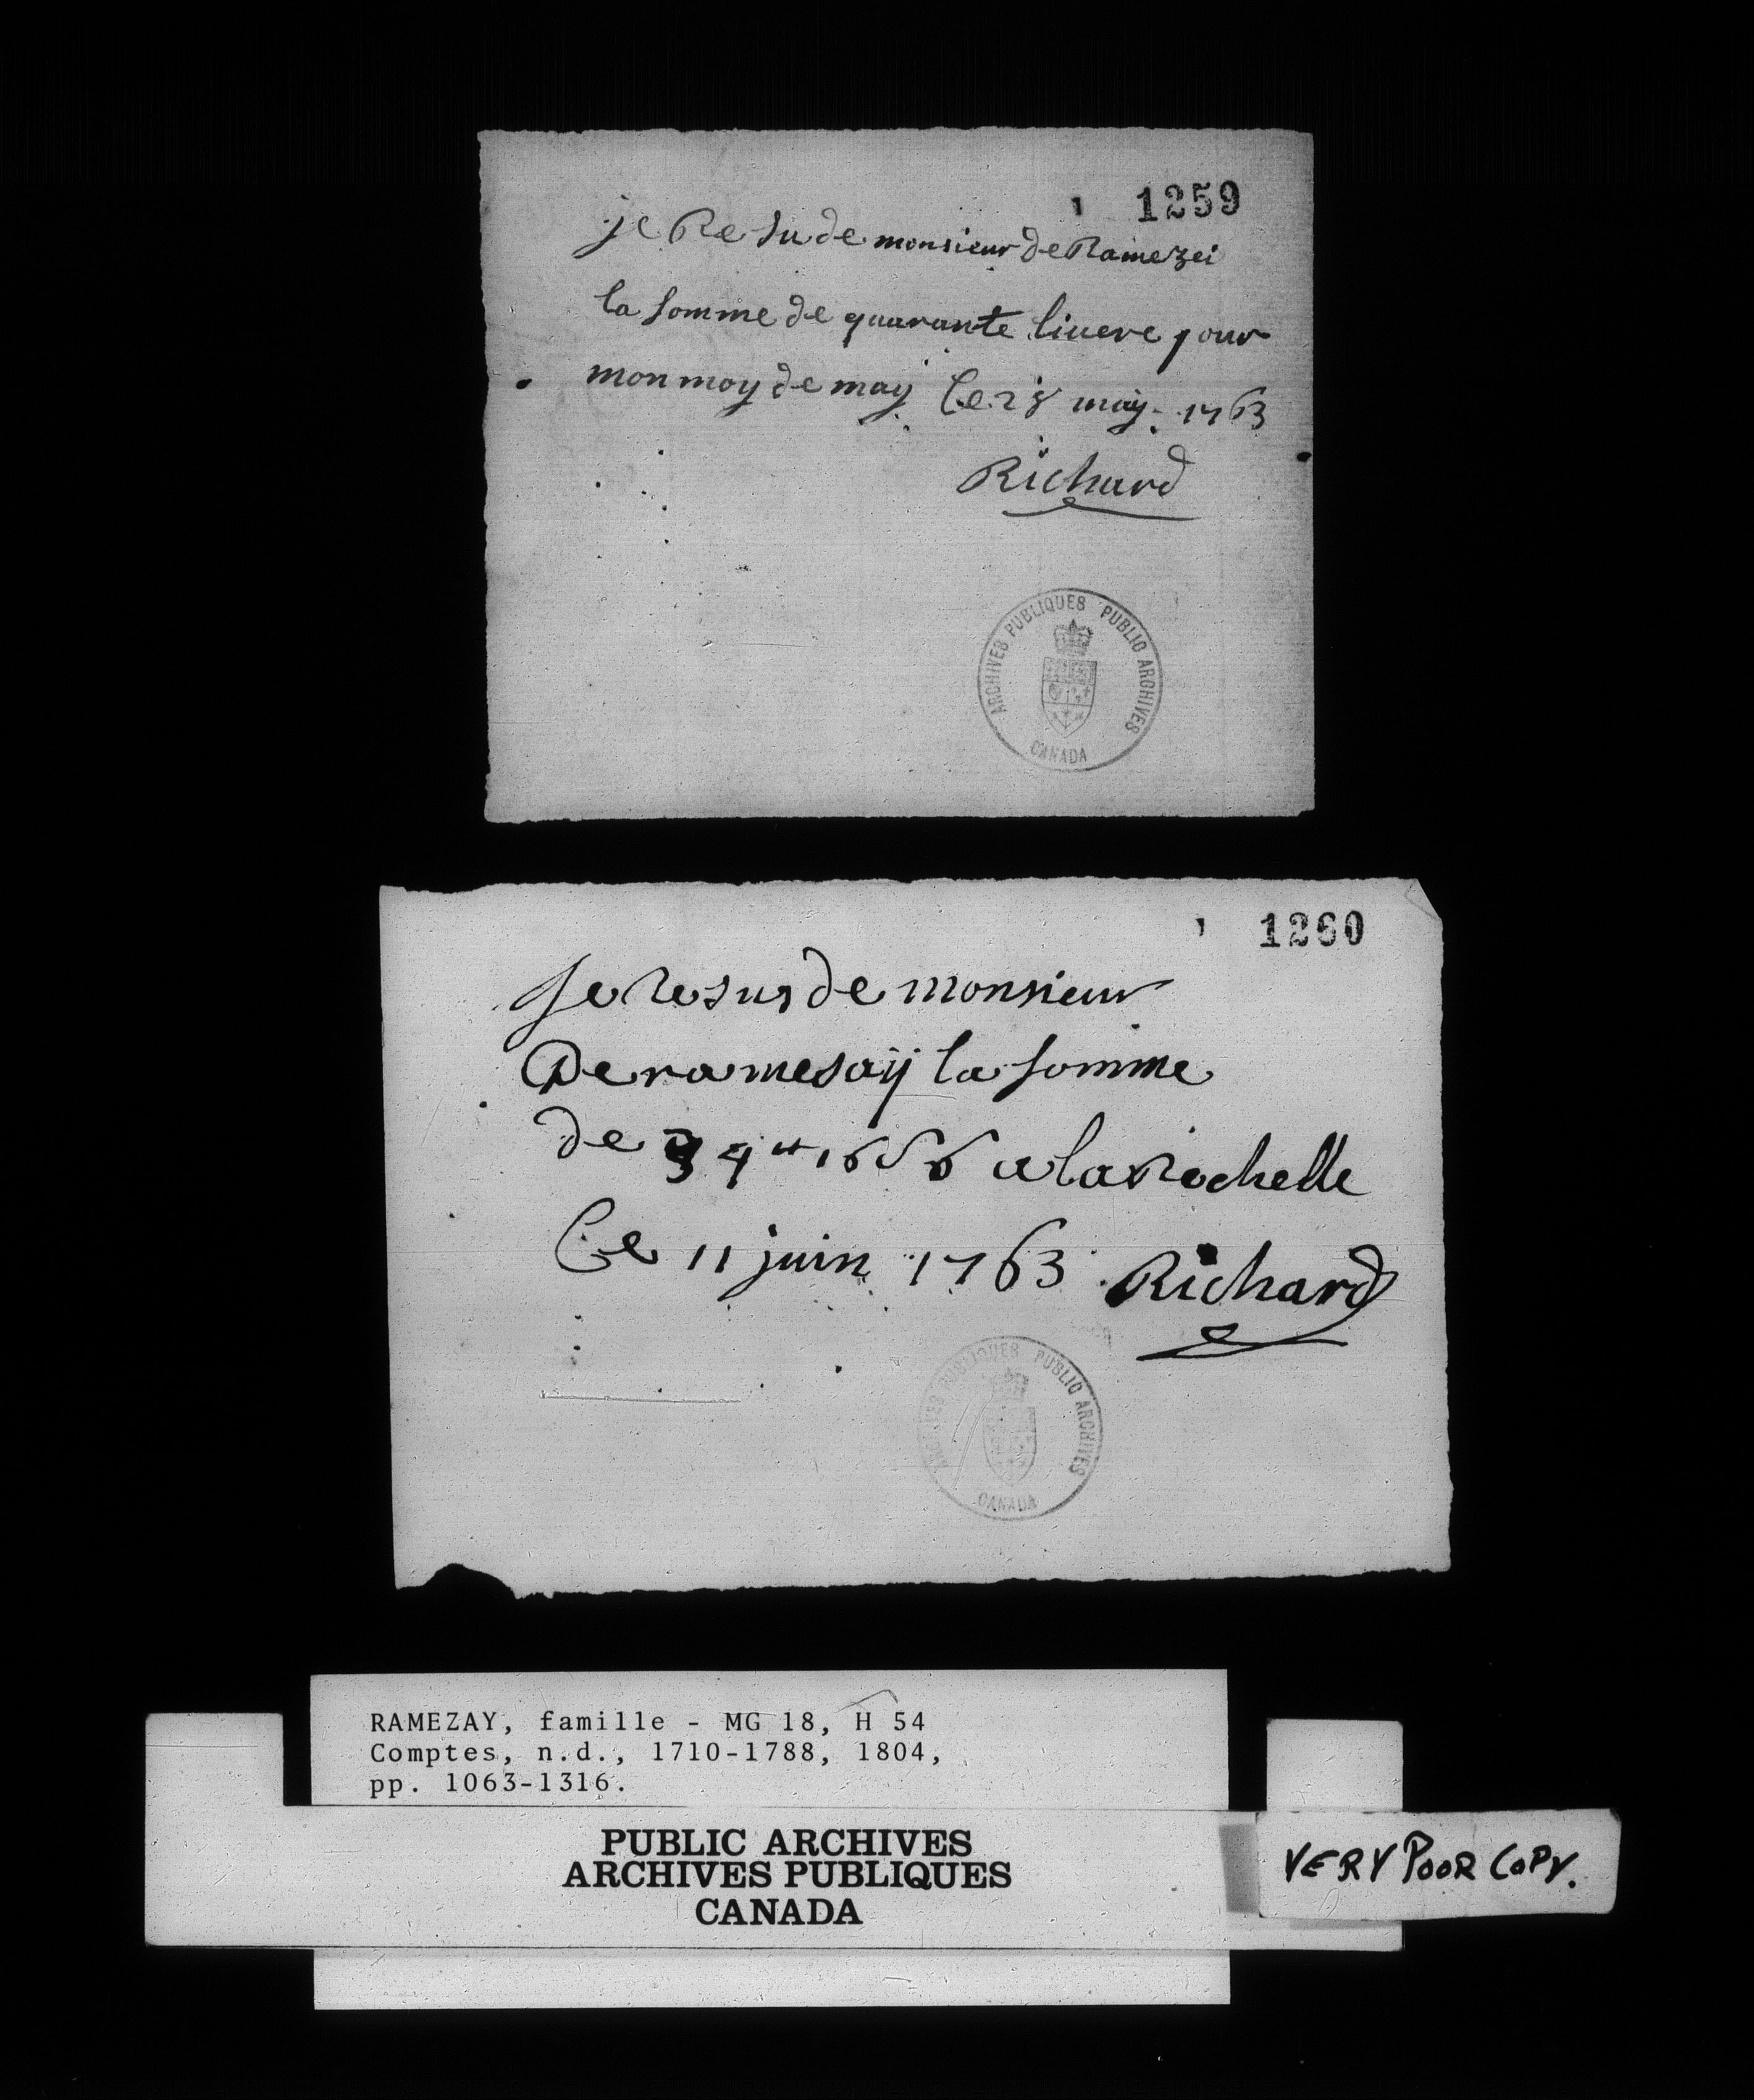 1259
je Resu de monsieur de Ramezei
la somme de quarante livere pour
mon moy de may Le 28 may 1763
Richard
ARCHIVES PUBLIQUES PUBLIC ARCHIVES
CANADA
1260
Je resus de monsieur
De ramesaÿ la somme
de 34tt 16s 6 a la Rochelle
Ce 11 juin 1763 Richard
ARCHIVES PUBLIQUES PUBLIC ARCHIVES
CANADA
RAMEZAY, famille - MG 18, H 54
Comptes, n.d., 1710-1788, 1804,
pp. 1063-1316.
PUBLIC ARCHIVES
ARCHIVES PUBLIQUES
CANADA
VERY POOR COPY.